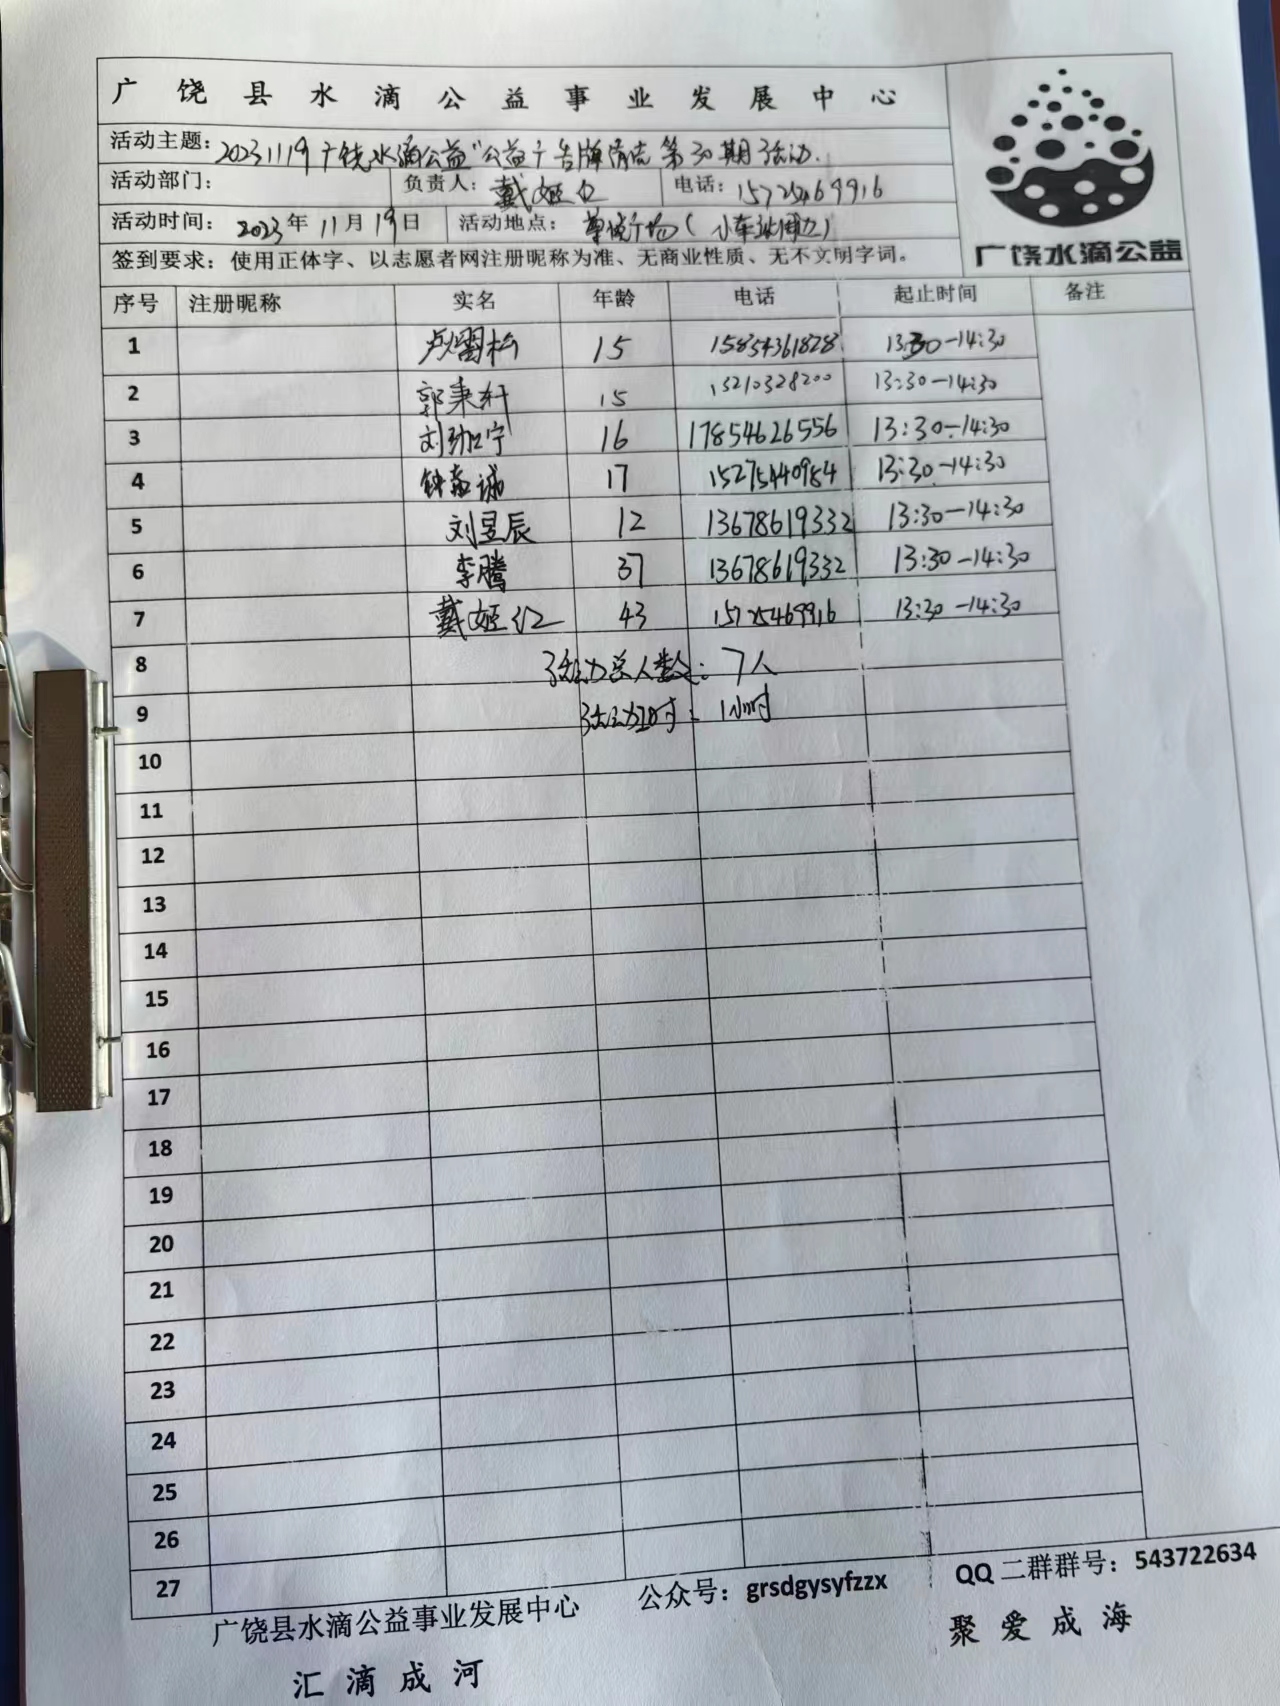 广饶县水滴公益事业发展中心
活动主题：20231119广饶水滴公益"公益广告牌清洁第30期活动.
活动部门： 负责人：戴姬红 电话：15725469916
活动时间：2023年11月19日 活动地点： 广场(小车站周边)
签到要求：使用正体字、以志愿者网注册昵称为准、无商业性质、无不文明字词。
广饶水滴公益
序号 注册昵称 实名 年龄 电话 起止时间 备注
1 15 15854361828 13:30-14:30
2 郭秉轩 15 15210328200 13:30-14:30
3 刘 宁 16 17854626556 13:30-14:30
4 钟 诚 17 15275440984 13:30-14:30
5 刘昱辰 12 13678619332 13:30-14:30
6 李腾 37 13678619332 13:30-14:30
7 戴姬红 43 15725469916 13:30-14:30
8 活动总人数：7人
9 活动用时：1小时
10
11
12
13
14
15
16
17
18
19
20
21
22
23
24
25
26
27
广饶县水滴公益事业发展中心 公众号：grsdgysyfzzx QQ二群群号：543722634
汇滴成河 聚爱成海